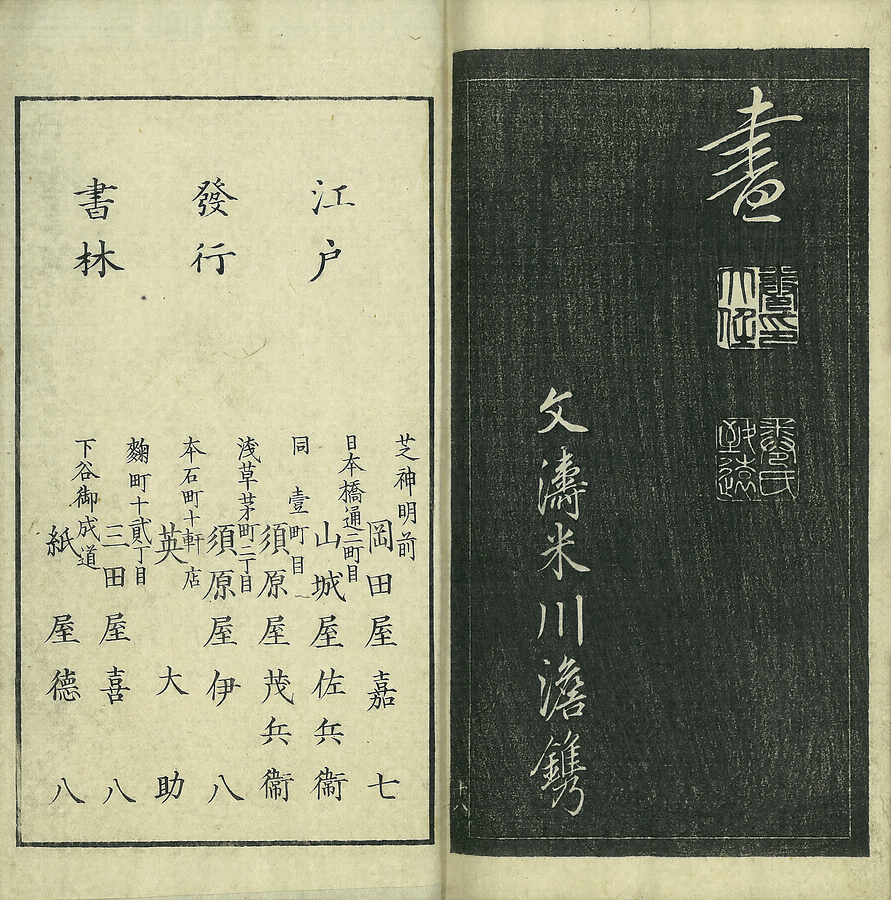 書
卷印
大任
卷氏
致遠
文濤米川澹鐫
十八
江戸
發行
書林
芝神明前
岡田屋嘉七
日本橋通二町目
山城屋佐兵衞
同壹町目
須原屋茂兵衞
浅草茅町二丁目
須原屋伊八
本石町十軒店
英大助
麴町十貳丁目
三田屋喜八
下谷御成道
紙屋德八